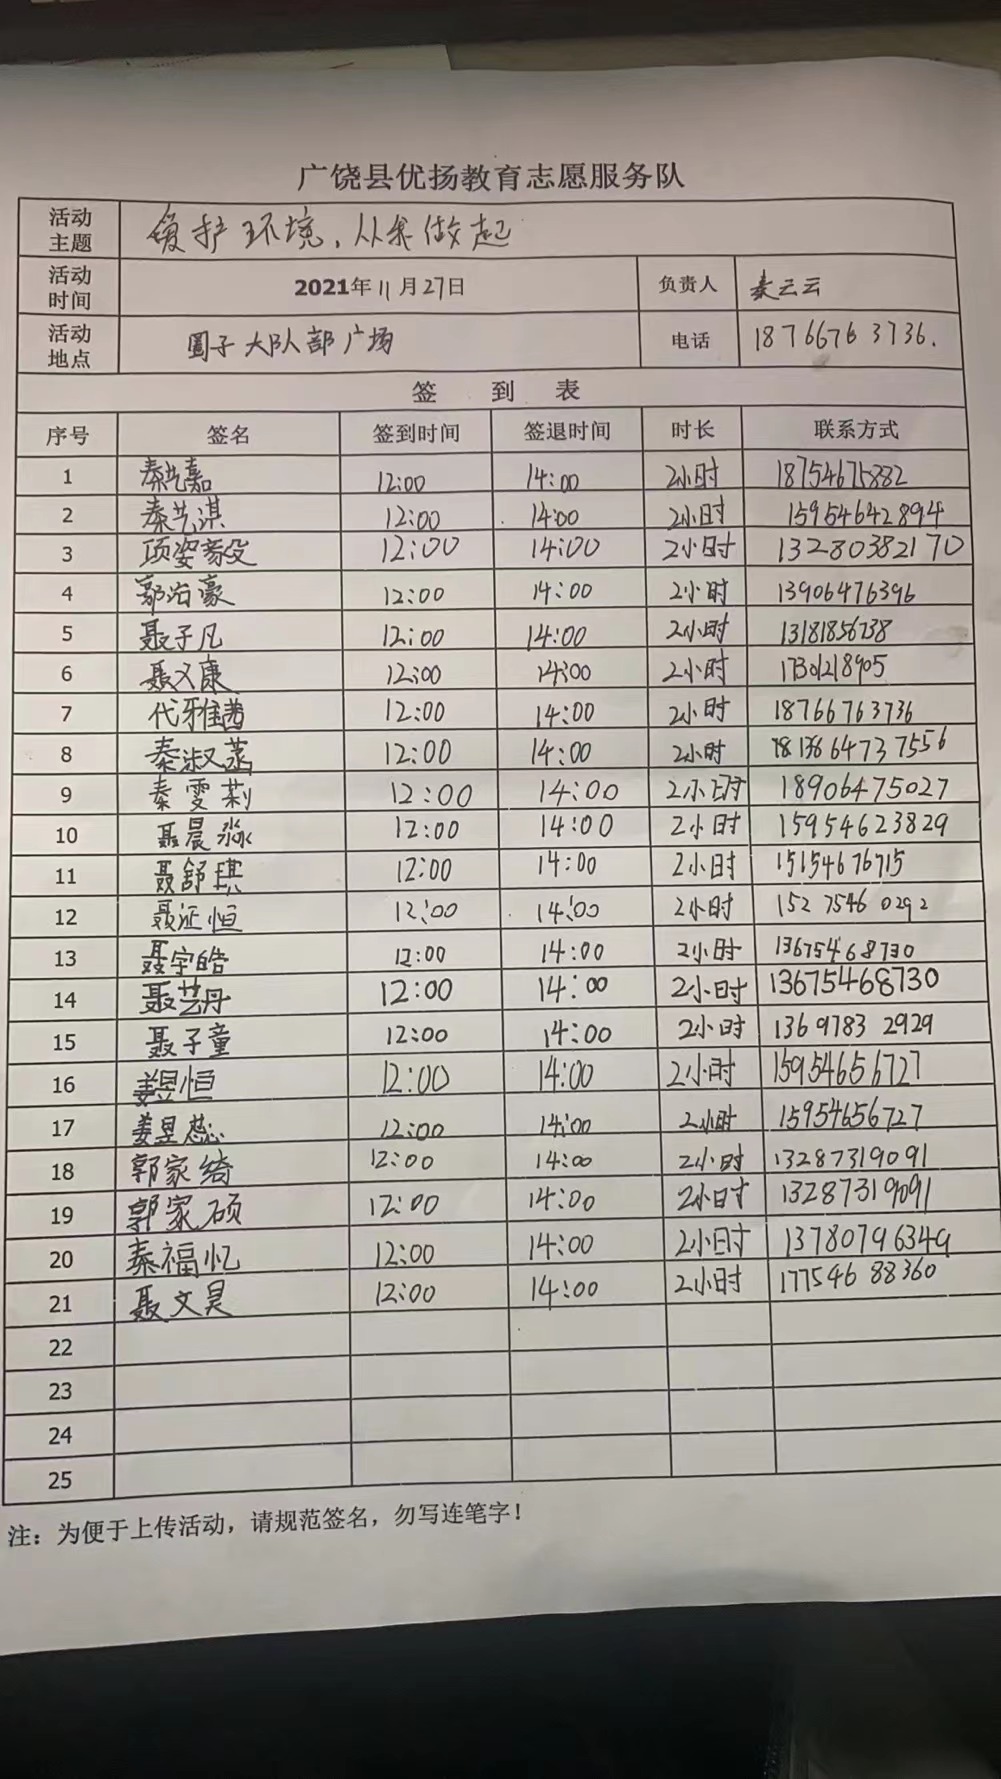 广饶县优扬教育志愿服务队
活动主题 爱护环境,从我做起
活动时间 2021年11月27日 负责人 秦云云
活动地点 圈子大队部广场 电话 18766763736.
签 到 表
序号 签名 签到时间 签退时间 时长 联系方式
1 秦艺嘉 12:00 14:00 2小时 18754675882
2 秦艺淇 12:00 14:00 2小时 15954642894
3 项姿 12:00 14:00 2小时 13280382170
4 郭治豪 12:00 14:00 2小时 13906476396
5 聂子凡 12:00 14:00 2小时 13181856738
6 聂义康 12:00 14:00 2小时 17301218905
7 代雅茜 12:00 14:00 2小时 18766763736
8 秦淑菡 12:00 14:00 2小时 13864737556
9 秦雯莉 12:00 14:00 2小时 18906475027
10 聂晨淼 12:00 14:00 2小时 15954623829
11 聂舒琪 12:00 14:00 2小时 15154676715
12 聂证恒 12:00 14:00 2小时 152 7546 0292
13 聂宇皓 12:00 14:00 2小时 13675468730
14 聂艺丹 12:00 14:00 2小时 13675468730
15 聂子童 12:00 14:00 2小时 1369783 2929
16 姜昱恒 12:00 14:00 2小时 15954656727
17 姜昱蕊 12:00 14:00 2小时 15954656727
18 郭家绮 12:00 14:00 2小时 13287319091
19 郭家硕 12:00 14:00 2小时 13287319091
20 秦福忆 12:00 14:00 2小时 13780796349
21 聂文昊 12:00 14:00 2小时 177546 88360
22
23
24
25
注：为便于上传活动，请规范签名，勿写连笔字！